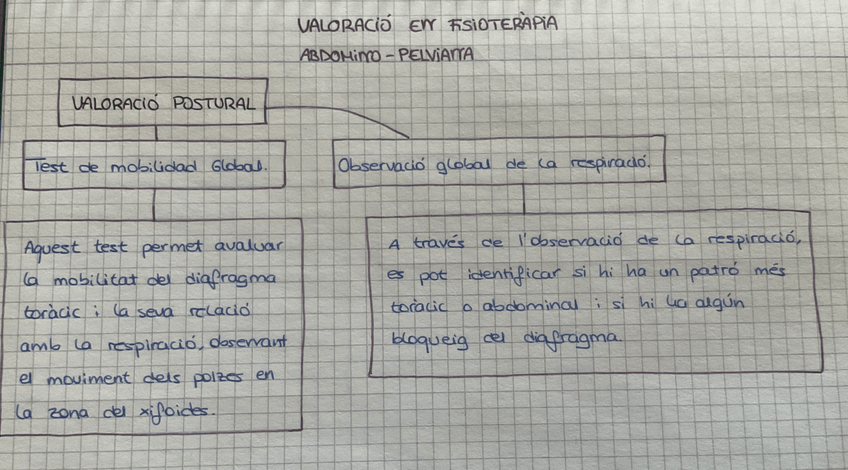 VALORACIÓ EN FISIOTERÀPIA
ABDOMINO-PELVIANA
VALORACIÓ POSTURAL
Test de mobilidad Global.
Observació global de la respiració.
Aquest test permet avaluar
la mobilitat del diafragma
toràcic i la seva relació
amb la respiració, observant
el moviment dels polzes en
la zona del xifoides.
A través de l'observació de la respiració,
es pot identificar si hi ha un patró més
toràcic o abdominal i si hi ha algún
bloqueig del diafragma.